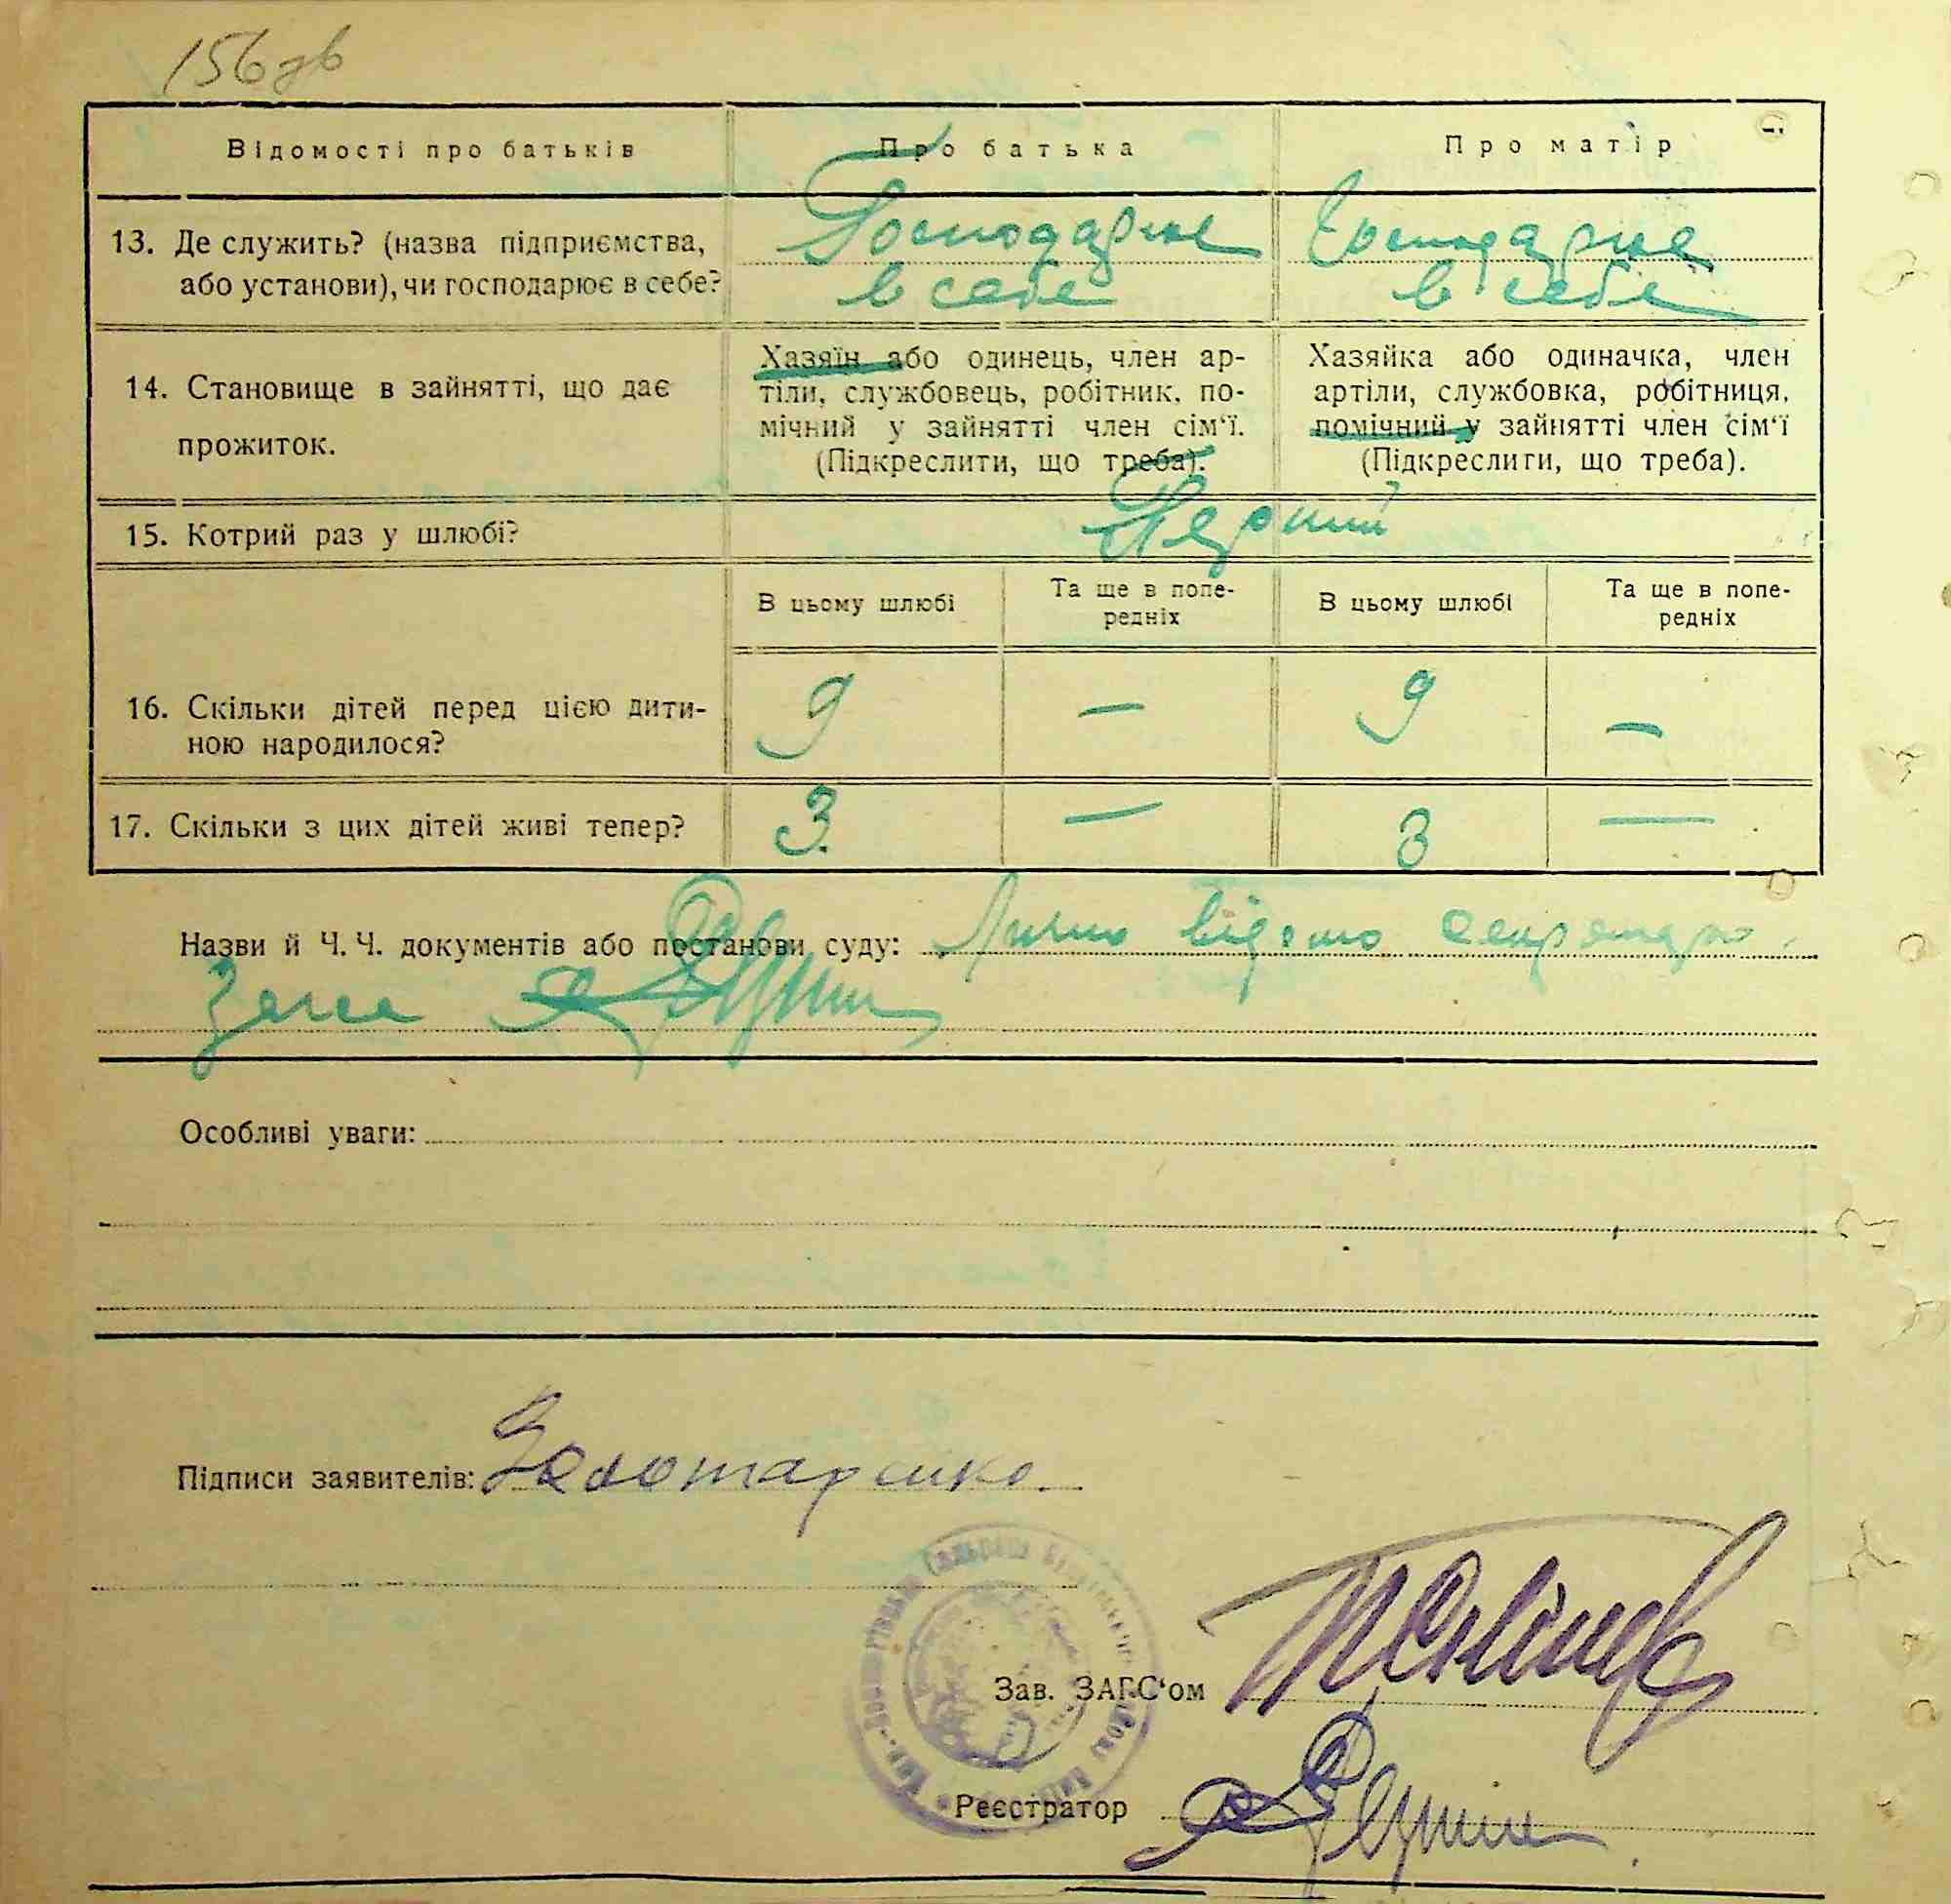 156 зв
Відомості про батьків
Про батька
Про матір
13. Де служить? (назва підприємства,
або установи), чи господарює в себе?
Господарює
в себе
Господарює
в себе
14. Становище в зайнятті, що дає
прожиток.
Хазяїн або одинець, член ар-
тіли, службовець, робітник, по-
мічний у зайнятті член сім‘ї.
(Підкреслити, що треба).
Хазяйка або одиначка, член
артіли, службовка, робітниця,
помічний у зайнятті член сім‘ї
(Підкреслити, що треба).
15. Котрий раз у шлюбі?
Перший
В цьому шлюбі
Та ще в попе-
редніх
В цьому шлюбі
Та ще в попе-
редніх
16. Скільки дітей перед цією дити-
ною народилося?
9
—
9
—
17. Скільки з цих дітей живі тепер?
3
—
3
—
Назви й Ч. Ч. документів або постанови суду: Лично відомо секретарю
Загса
Особливі уваги:
Підписи заявителів: Золотаренко
Зав. ЗАГС‘ом
Реєстратор